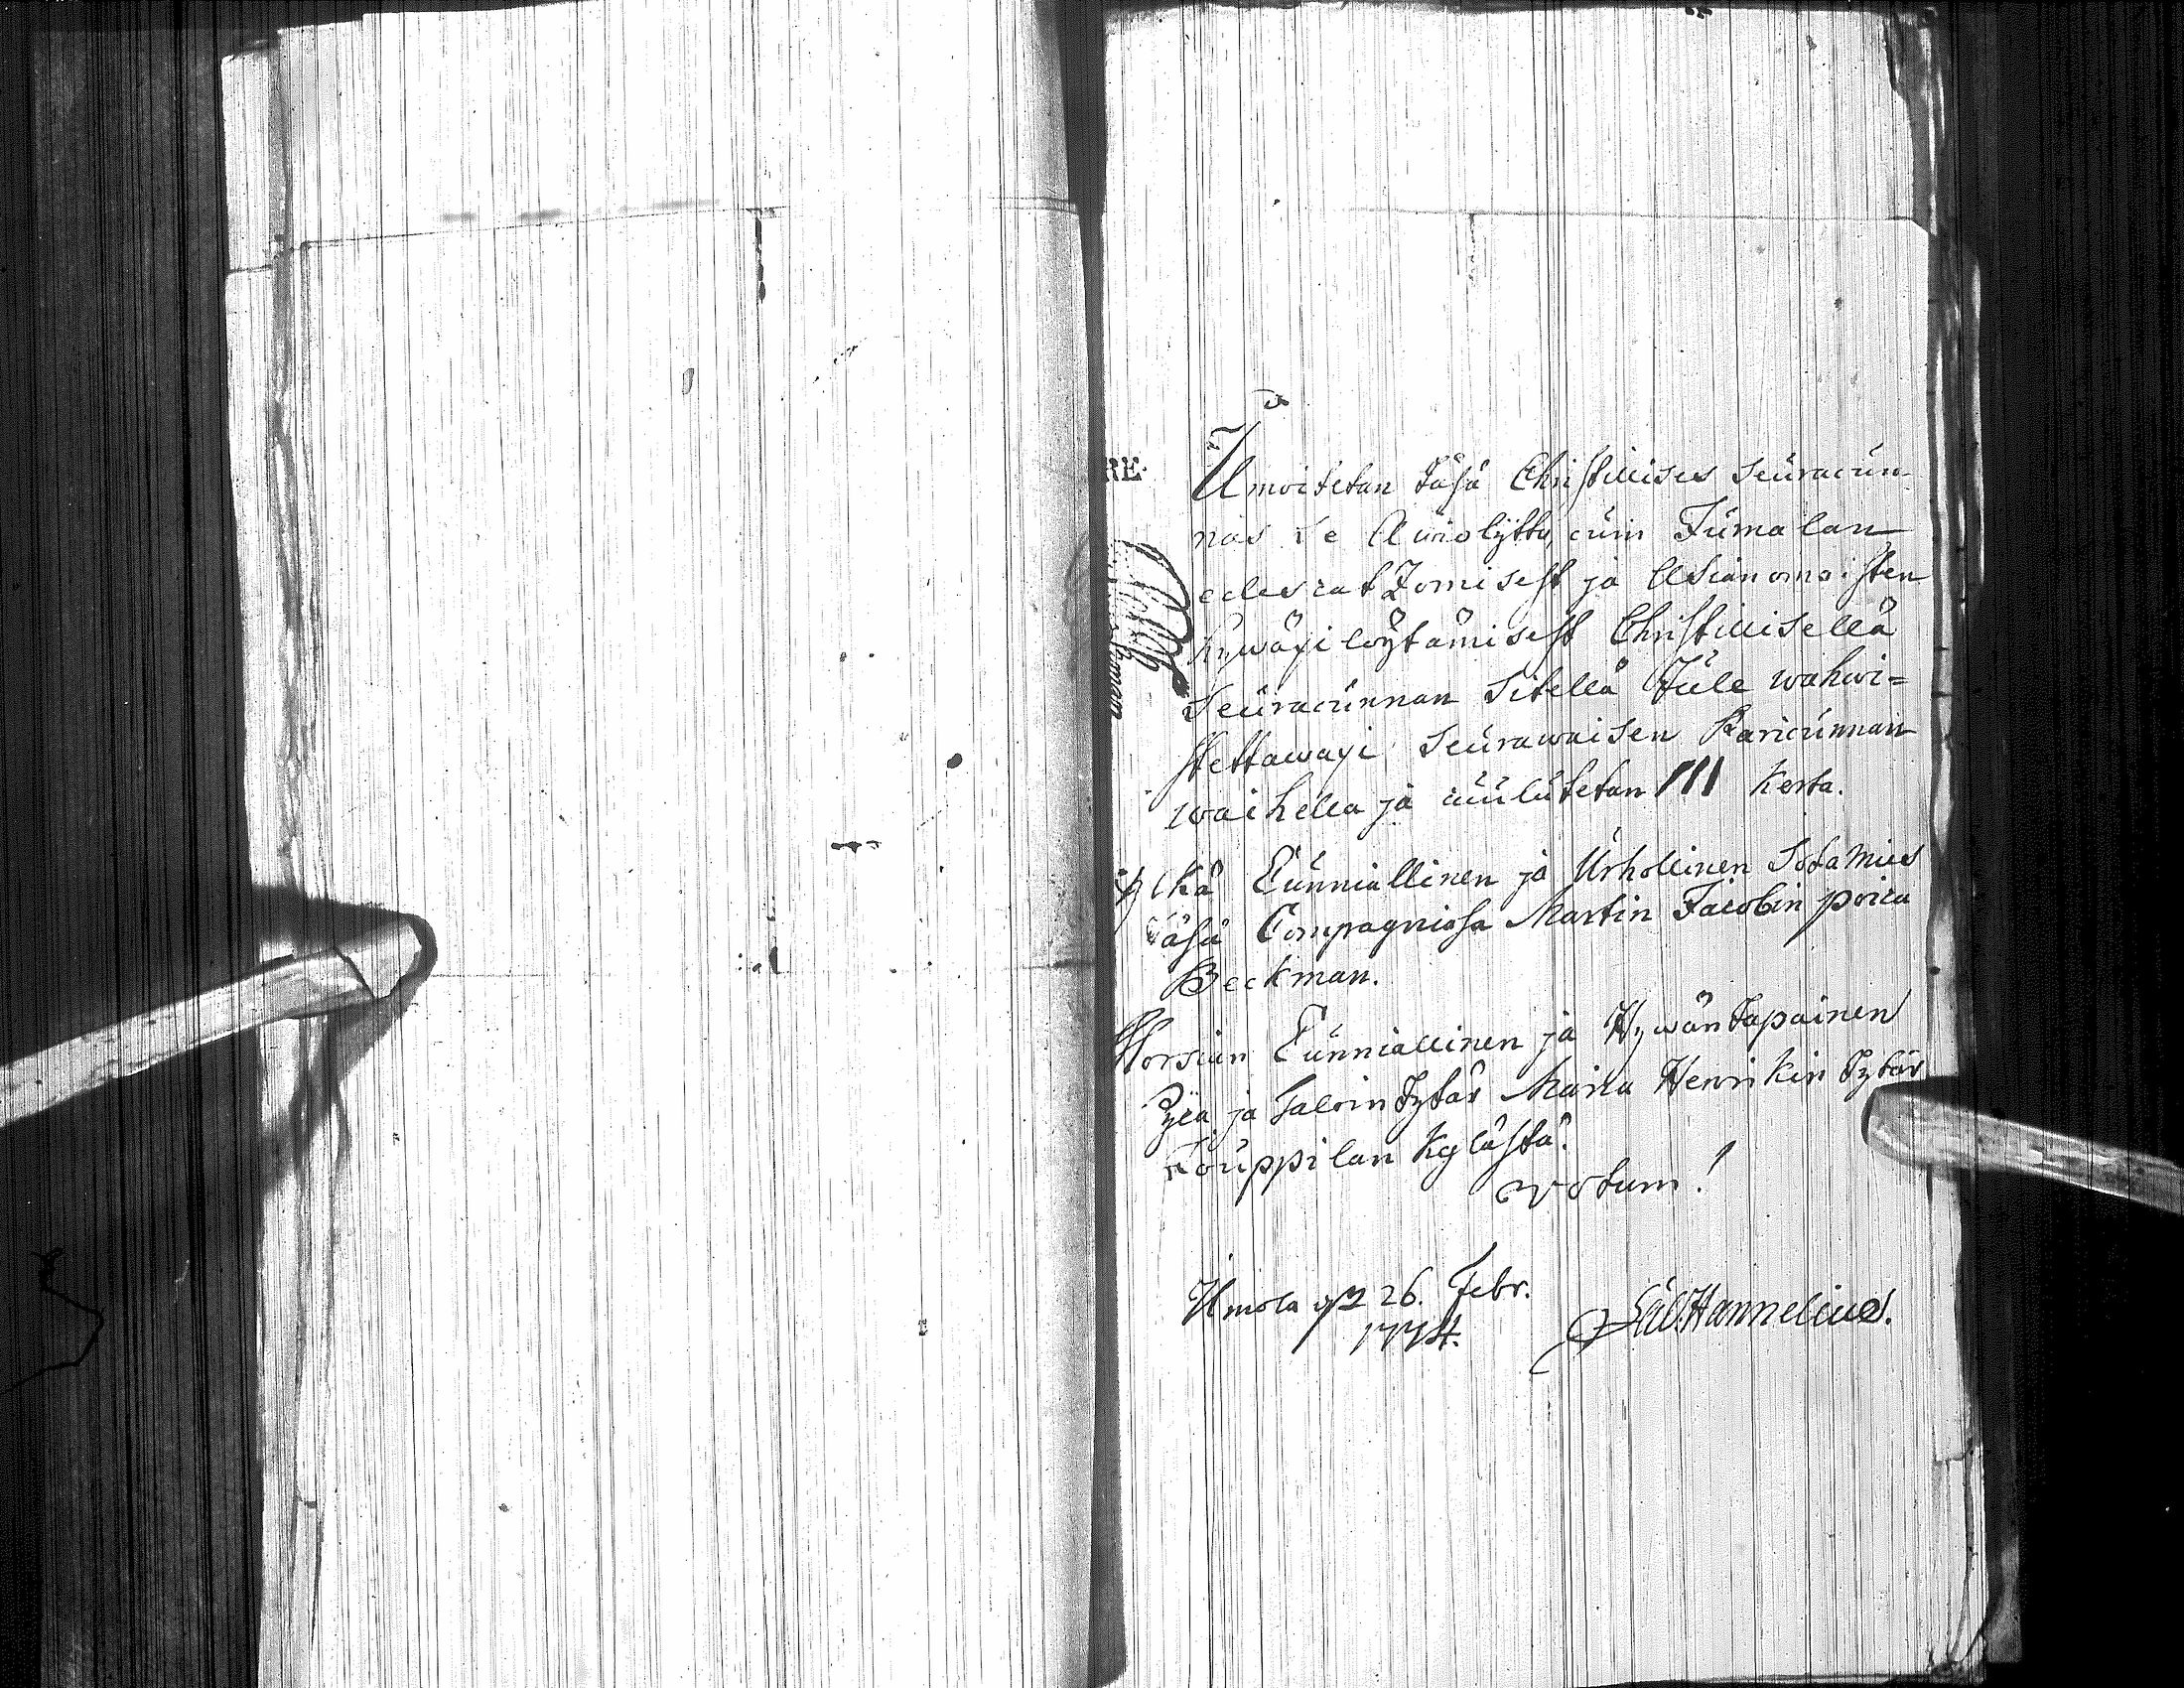 RE
Ilmoitetan täsä Christillises Seuracun-
nas se Awiolijtto, cuin Jumalan
edescatzomisest ja Asianomaisten
hywäxi löytämisest Christillisellä
Seuracunnan Sitellä Tule wahwi=
stettawaxi seurawaisen Pariscunnan
waihella ja cuulutetan III Kerta.
Ylkä Cunniallinen ja Urhollinen Sotamies
täsä Compagniasa Martin Jacobin poica
Beckman.
Morsian Cunniallinen ja Hywäntapainen
Pijca ja Talointytär Maria Henrikin tytär
Kouppilan Kylästä.
Votum!
Ilmola 26. Febr.
1774.
Hannelius.